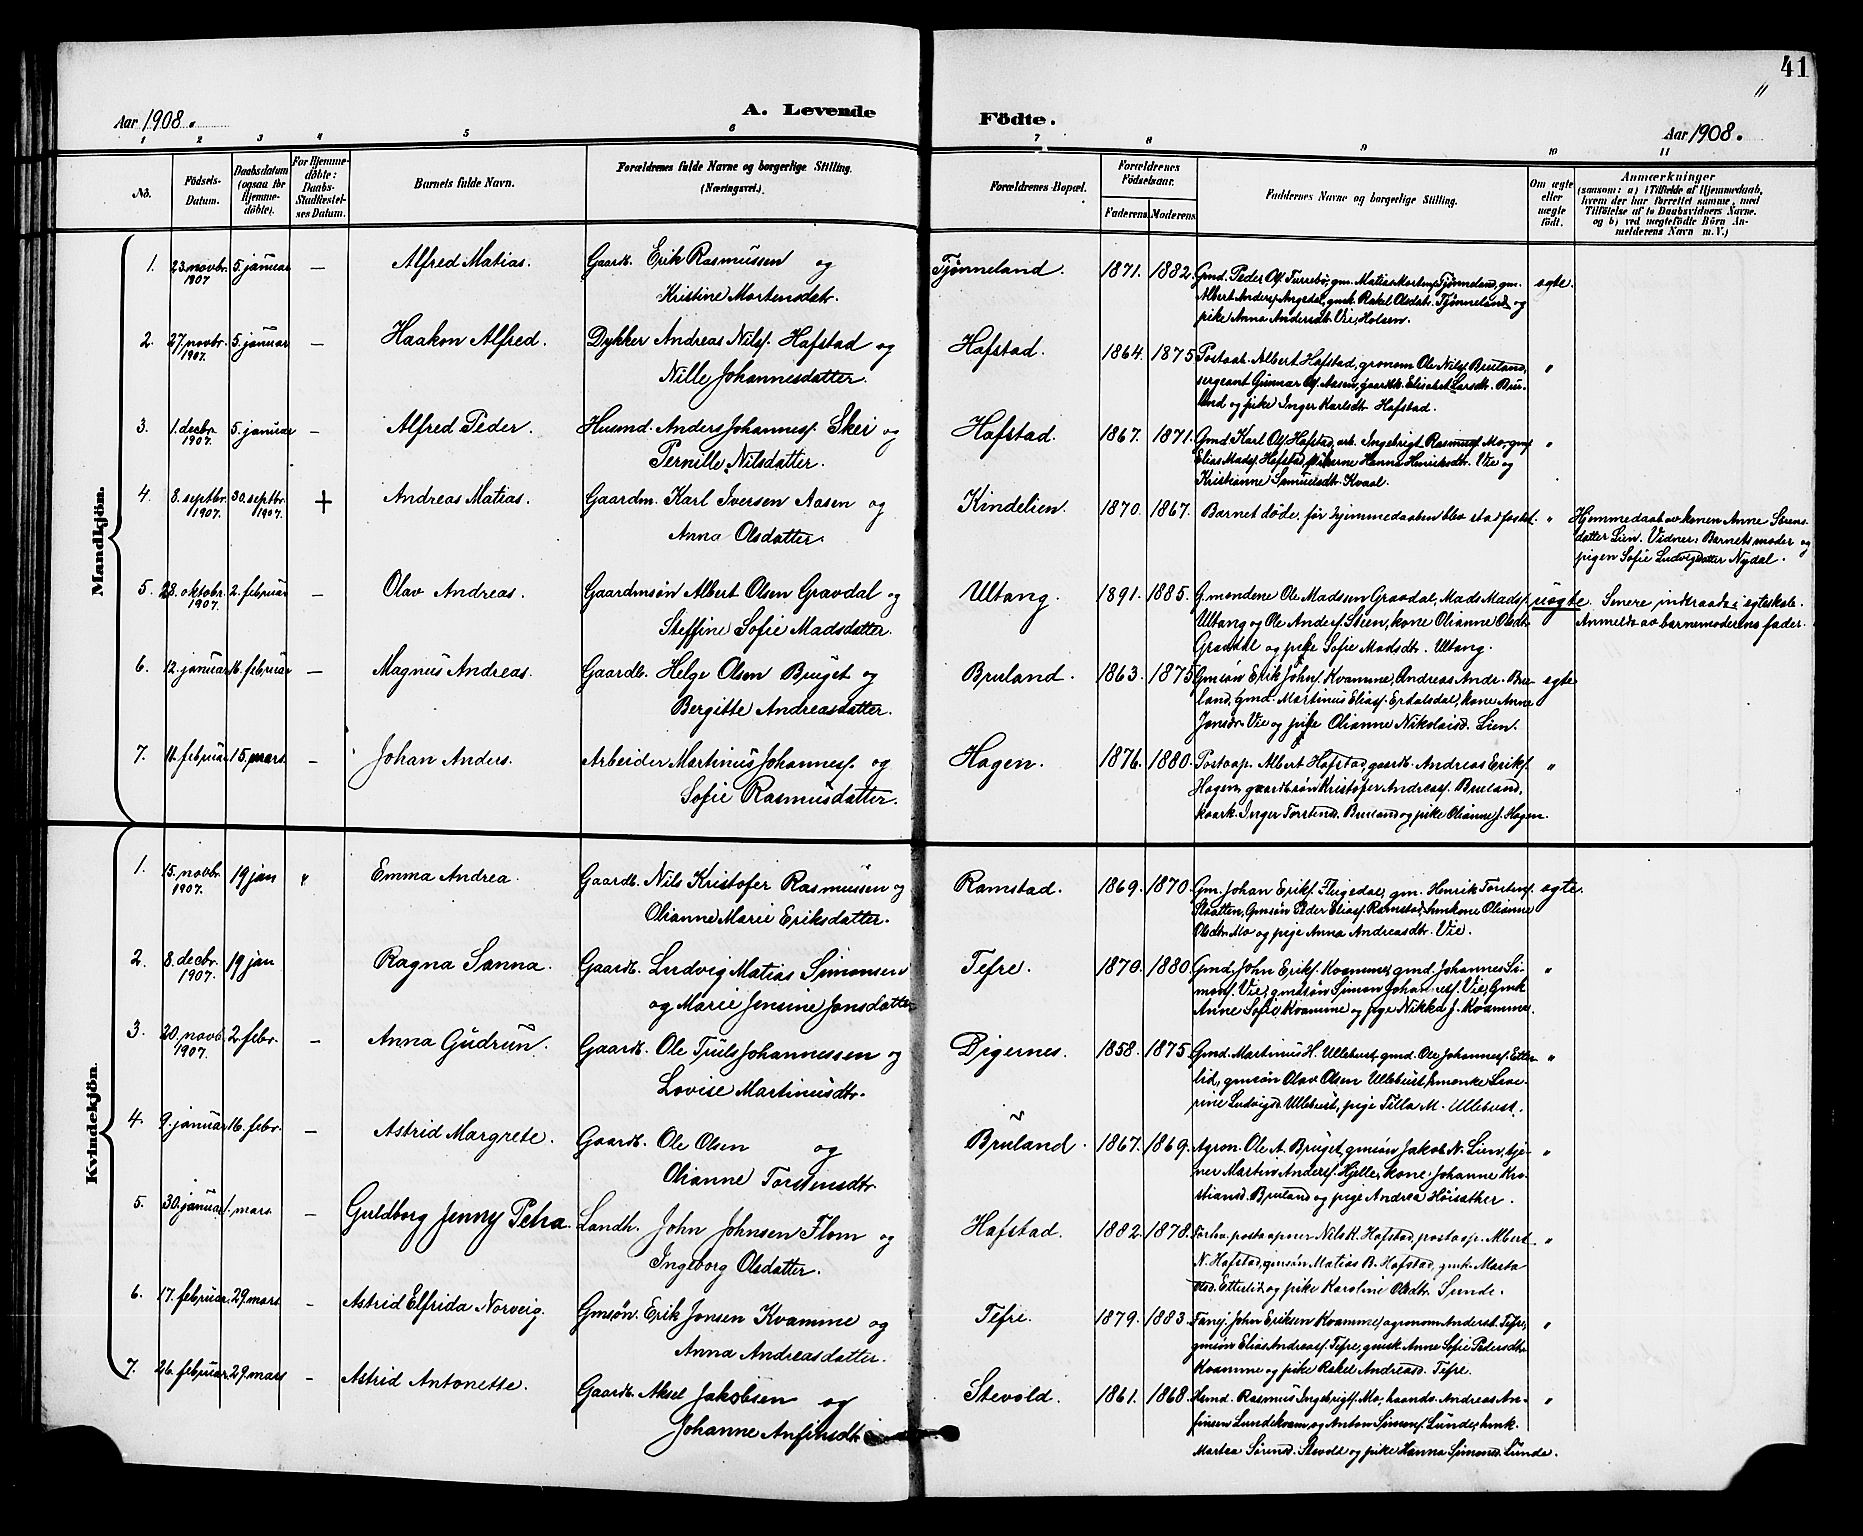 41
"
Aar 1908.
A. Levende
Födte.
Aar 1908.
1 2 3 4 5 6 7 8 9 10 11
No.
Födsels-
Datum.
Daabsdatum
(ogsaa for
Hjemme-
döbte).
For Hjemme-
döbte:
Daabs-
Stadfæstel-
ses Datum.
Barnets fulde Navn.
Forældrenes fulde Navne og borgerlige Stilling.
(Næringsvei.)
Forældrenes Bopæl.
Forældrenes
Födselsaar.
Faderens. Moderens.
Faddernes Navne og borgerlige Stilling.
Om ægte
eller
uægte
födt.
Anmærkninger
(saasom: a) i Tilfælde af Hjemmedaab,
hvem der har forrettet samme, med
Tilföielse af to Daabsvidners Navne.
og b) ved uægtefödte Börn An-
melderens Navn m. V.)
Mandkjön.
1. 23. novbr. 1907 5. januar — Alfred Matias. Gaardb. Erik Rasmussen og
Kristine Mortensdatr.
Tjønneland. 1871. 1882. Gmd. Peder Ols. Turrebø, gm. Matias Mortens. Tjønneland, gm.
Albert Anders. Angedal, gmk. Rakel Olsdatr. Tjønneland og
pike Anna Andersdt. Vie, Holsen.
egte.
2. 27. novbr. 1907. 5. januar — Haakon Alfred. Dykker Andreas Nilss. Hafstad og
Nille Johannesdatter.
Hafstad. 1864. 1875 Postaab. Albert Hafstad, gronom Ole Nilss. Bruland,
sergeant Gunnar Ols. Aasen, gaardbk. Elisabet Larsdt. Bru-
land og pike Inger Karlsdtr Hafstad.
"
3. 1. decbr. 1907. 5. januar — Alfred Peder. Husmd. Anders Johanness. Skei og
Pernille Nilsdatter.
Hafstad. 1867. 1871. Gmd. Karl Ols. Hafstad, arb. Ingebrigt Rasmuss. Mo, gms.
Elias Mads. Hafstad, pikerne Hanna Henriksdtr. Vie og
Kristianne Samuelsdt. Kvaal.
"
4. 8. septbr. 1907. 30. septbr. 1907. + Andreas Matias. Gaardm. Karl Iversen Aasen og
Anna Olsdatter.
Kindelien. 1870. 1867. Barnet døde, før hjemmedaaben blev stadfestet. " Hjemmedaab av konen Anne Sørens-
datter Lien. Vidner: Barnets moder og
pigen Sofie Ludvigsdatter Nydal.
5. 28. oktobr. 1907. 2. februar — Olav Andreas. Gaardmsøn Albert Olsen Gravdal og
Steffine Sofie Madsdatter.
Ultang. 1891. 1885. G.mændene Ole Madsen Gravdal, Mads Madss.
Ultang og Ole Anders. Stien, kone Olianne Olsdt.
Gravdal og pike Sofie Madsdtr. Ultang.
uegte. Senere indtraadt i egteskab.
Anmeldt av barnemoderens fader.
6. 12. januar 16. februar — Magnus Andreas. Gaardb. Helge Olsen Bruget og
Bergitte Andreasdatter.
Bruland. 1863. 1875 Gmsøn Erik Johns. Kvamme, Andreas Andr. Bru-
land, gmd. Martinus Elias. Erdalsdal, kone Anne
Jonsdr. Vie og pike Olianne Nikolaisd. Lien.
egte
7. 11. februar 15. mars. — Johan Anders. Arbeider Martinus Johanness. og
Sofie Rasmusdatter.
Hagen. 1876. 1880. Postaap. Albert Hafstad, gaardb. Andreas Eriks.
Hagen, gaardbsøn Kristofer Andreass. Bruland,
kaark. Inger Torstensd. Bruland og pike Olianne J. Hagen.
"
Kvindekjön.
1. 15. novbr. 1907. 19 jan " Emma Andrea. Gaardb. Nils Kristofer Rasmussen og
Olianne Marie Eriksdatter.
Ramstad. 1869. 1870. Gm. Johan Eriks. Flugedal, gm. Henrik Torstens.
Slaatten, Gmsøn Peder Elias. Ramstad, hmkone Olianne
Olsdtr. Mo og pige Anna Andreasdtr. Vie.
egte.
2. 8. decbr. 1907. 19 jan Ragna Sanna. Gaardb. Ludvig Matias Simonsen
og Marie Jensine Jonsdatter
Tefre. 1870. 1880. Gmd. John Eriks. Kvamme, gmd. Johannes Si-
mons. Vie, gmdsøn Simon Johanness. Vie, Gmk
Anne Sofie Kvamme og pige Nikka J. Kvamme.
"
3. 20. novb. 1907. 2. febr. — Anna Gudrun. Gaardb. Ole Truls Johannessen og
Lovise Martinusdtr.
Digernes. 1858. 1875. Gmd. Martinus H. Ullebust, gmd. Ole Johanness. Etter-
lid, gmsøn Olav Olsen Ullebust,
rine Ludvigsd. Ullebust, pige Tilla M. Ullebust.
"
4. 9. januar 16. febr. — Astrid Margrete. Gaardb. Ole Olsen og
Olianne Torstensdtr.
Bruland. 1867. 1869. Agron. Ole A. Bruget, gmsøn Jakob N. Lien, tje-
ner Martin Anders. Hjelle, kone Johanne Kri-
stiansd. Bruland og pige Andrea Høisæther.
"
5. 30. januar 1. mars — Guldborg Jenny Petra. Landh. John Johnsen Flom og
Ingeborg Olsdatter.
Hafstad. 1882. 1878. Forhv. postaapner Nils K. Hafstad, postaap. Albert
N. Hafstad, gmsøn Matias B. Hafstad, gmk. Marta
Olsd. Etterlid og pike Karoline Olsdtr. Sunde.
"
6. 17. februar. 29. mars. — Astrid Elfrida Norveig. Gmsøn. Erik Jonsen Kvamme og
Anna Andreasdatter.
Tefre. 1879. 1883. Fanej. John Eriksen Kvamme, agronom Anders J. Tefre,
gmsøn Elias Andreass. Tefre, gmsk. Anne Sofie Pedersdtr.
Kvamme og pike Rakel Andreasd. Tefre.
"
7. 26. februar. 29. mars — Astrid Antonette. Gaardb. Aksel Jakobsen og
Johanne Anfinsdtr
Stevold. 1861. 1868. Hsmd. Rasmus Ingebrigts. Mo, haandv. Andreas An-
finsen Lundekvam, og Anton Simons. Lunde, hmk.
Martea Sørensd. Stevold og pike Hanna Simonsd. Lunde.
"